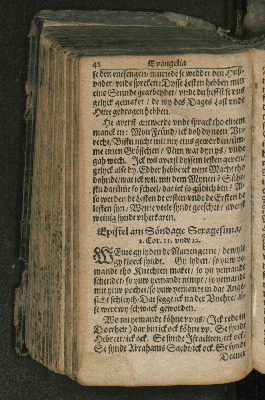 42 Euangelia
se den entfengen / murrede se wedder den Huß-
vader / vnde spreken: Dysse lesten hebben men
eine Stunde gearbeydet / vnde du heffst se vns
gelyck gemaket / de wy des Dages Last vnde
Hitte gedragen hebben.
He averst antwerde vnde sprack tho einem
manck en: Myn Fründt / ick do dy neen Vn-
recht / Bistu nicht mit my eins geworden
vmme einen Gröschen? Nim wat dyn ys / vnde
gah wech. Ick wil averst dyssem lesten geven /
gelyck alse dy. Edder hebbe ick nene Macht tho
dohnde / wat ick wil / mit dem Mynen? Süht
stu darümme so scheel / dat ick so güdich bin? Al-
so werden de lesten de ersten / vnde de Ersten de
lesten syn / Wente vele synd geeschet / averst
weinig synde vtherkaren.
Epistel am Söndage Sexagesima /
2. Cor. 11. vnde 12.
WEnte gy lyden de Narren gerne / dewyle
gy klock synd. Gy lyden / so yuw ye-
mande tho Knechten maket / so yw yemande
schendet / so yuw yemandt nimpt / so yemandt
mit yuw pochet / so yuw yemandt in dat Ange-
sicht schleyth. Dat segge ick na der Vnehre / al-
se were wy schwack geworden.
Wo nu yemandt köhne ys / (Ick rede in
Dorheit) dar bin ick ock köhne vp. Se synd
Hebreer / ick ock. Se synd Israeliten / ick ock.
Se synd Abrahams Saedt / ick ock. Se synd
Deener